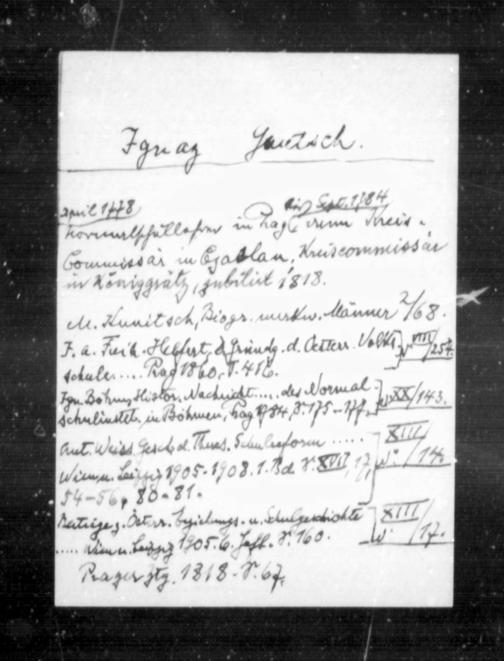 Ignaz Gruetsch.
April 1778 bis Sept. 1784
Normalschullehrer in Prag, dann Kreis-
Commissär in Czaslau, Kreiscommissär
in Königgrätz, jubilirt 1818.
M. Kunitsch, Biogr. merkw. Männer 2/68.
F. A. Frih. Helfert, d. Gründg. d. Oesterr. Volks- VIII/254.
schule.... Prag 1860, S. 416.
Ign. Böhm, Histor. Nachricht.... des Normal- XX/143.
schulinstit. in Böhmen, Prag 1784, S. 175-177.
Ant. Weiss, Gesch. d. Theres. Schulreform ..... XIII
Wien u. Leipzig 1905-1908. 1. Bd. S. XVII, 17, /14
54-56, 80-81.
Beiträge z. Österr. Erziehungs- u. Schulgeschichte XIII
..... Wien u. Leipzig 1905. 6. Heft. S. 160. /17.
Prager Ztg. 1818. S. 67.